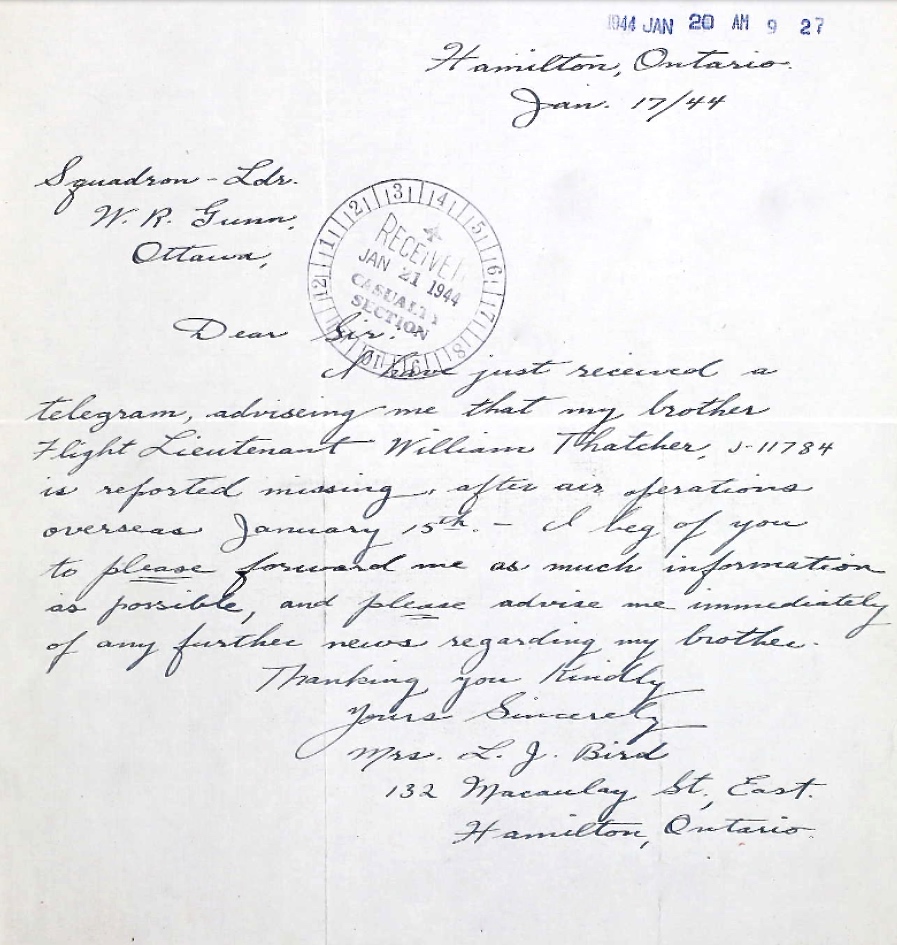 1944 JAN 20 AM 9 27
Hamilton, Ontario.
Jan. 17/44
Squadron - Ldr.
W. R. Gunn,
Ottawa,
12 1 2 3 4 5 6 7 8 9 10
RECEIVED
JAN 21 1944
CASUALTY
SECTION
Dear Sir:
I have just received a
telegram, adviseing me that my brother
Flight Lieutenant William Thatcher, J-11784
is reported missing, after air operations
overseas January 15th. - I beg of you
to please forward me as much information
as possible, and please advise me immediately
of any further news regarding my brother.
Thanking you Kindly
Yours Sincerely
Mrs. L. J. Bird
132 Macaulay St, East.
Hamilton, Ontario.